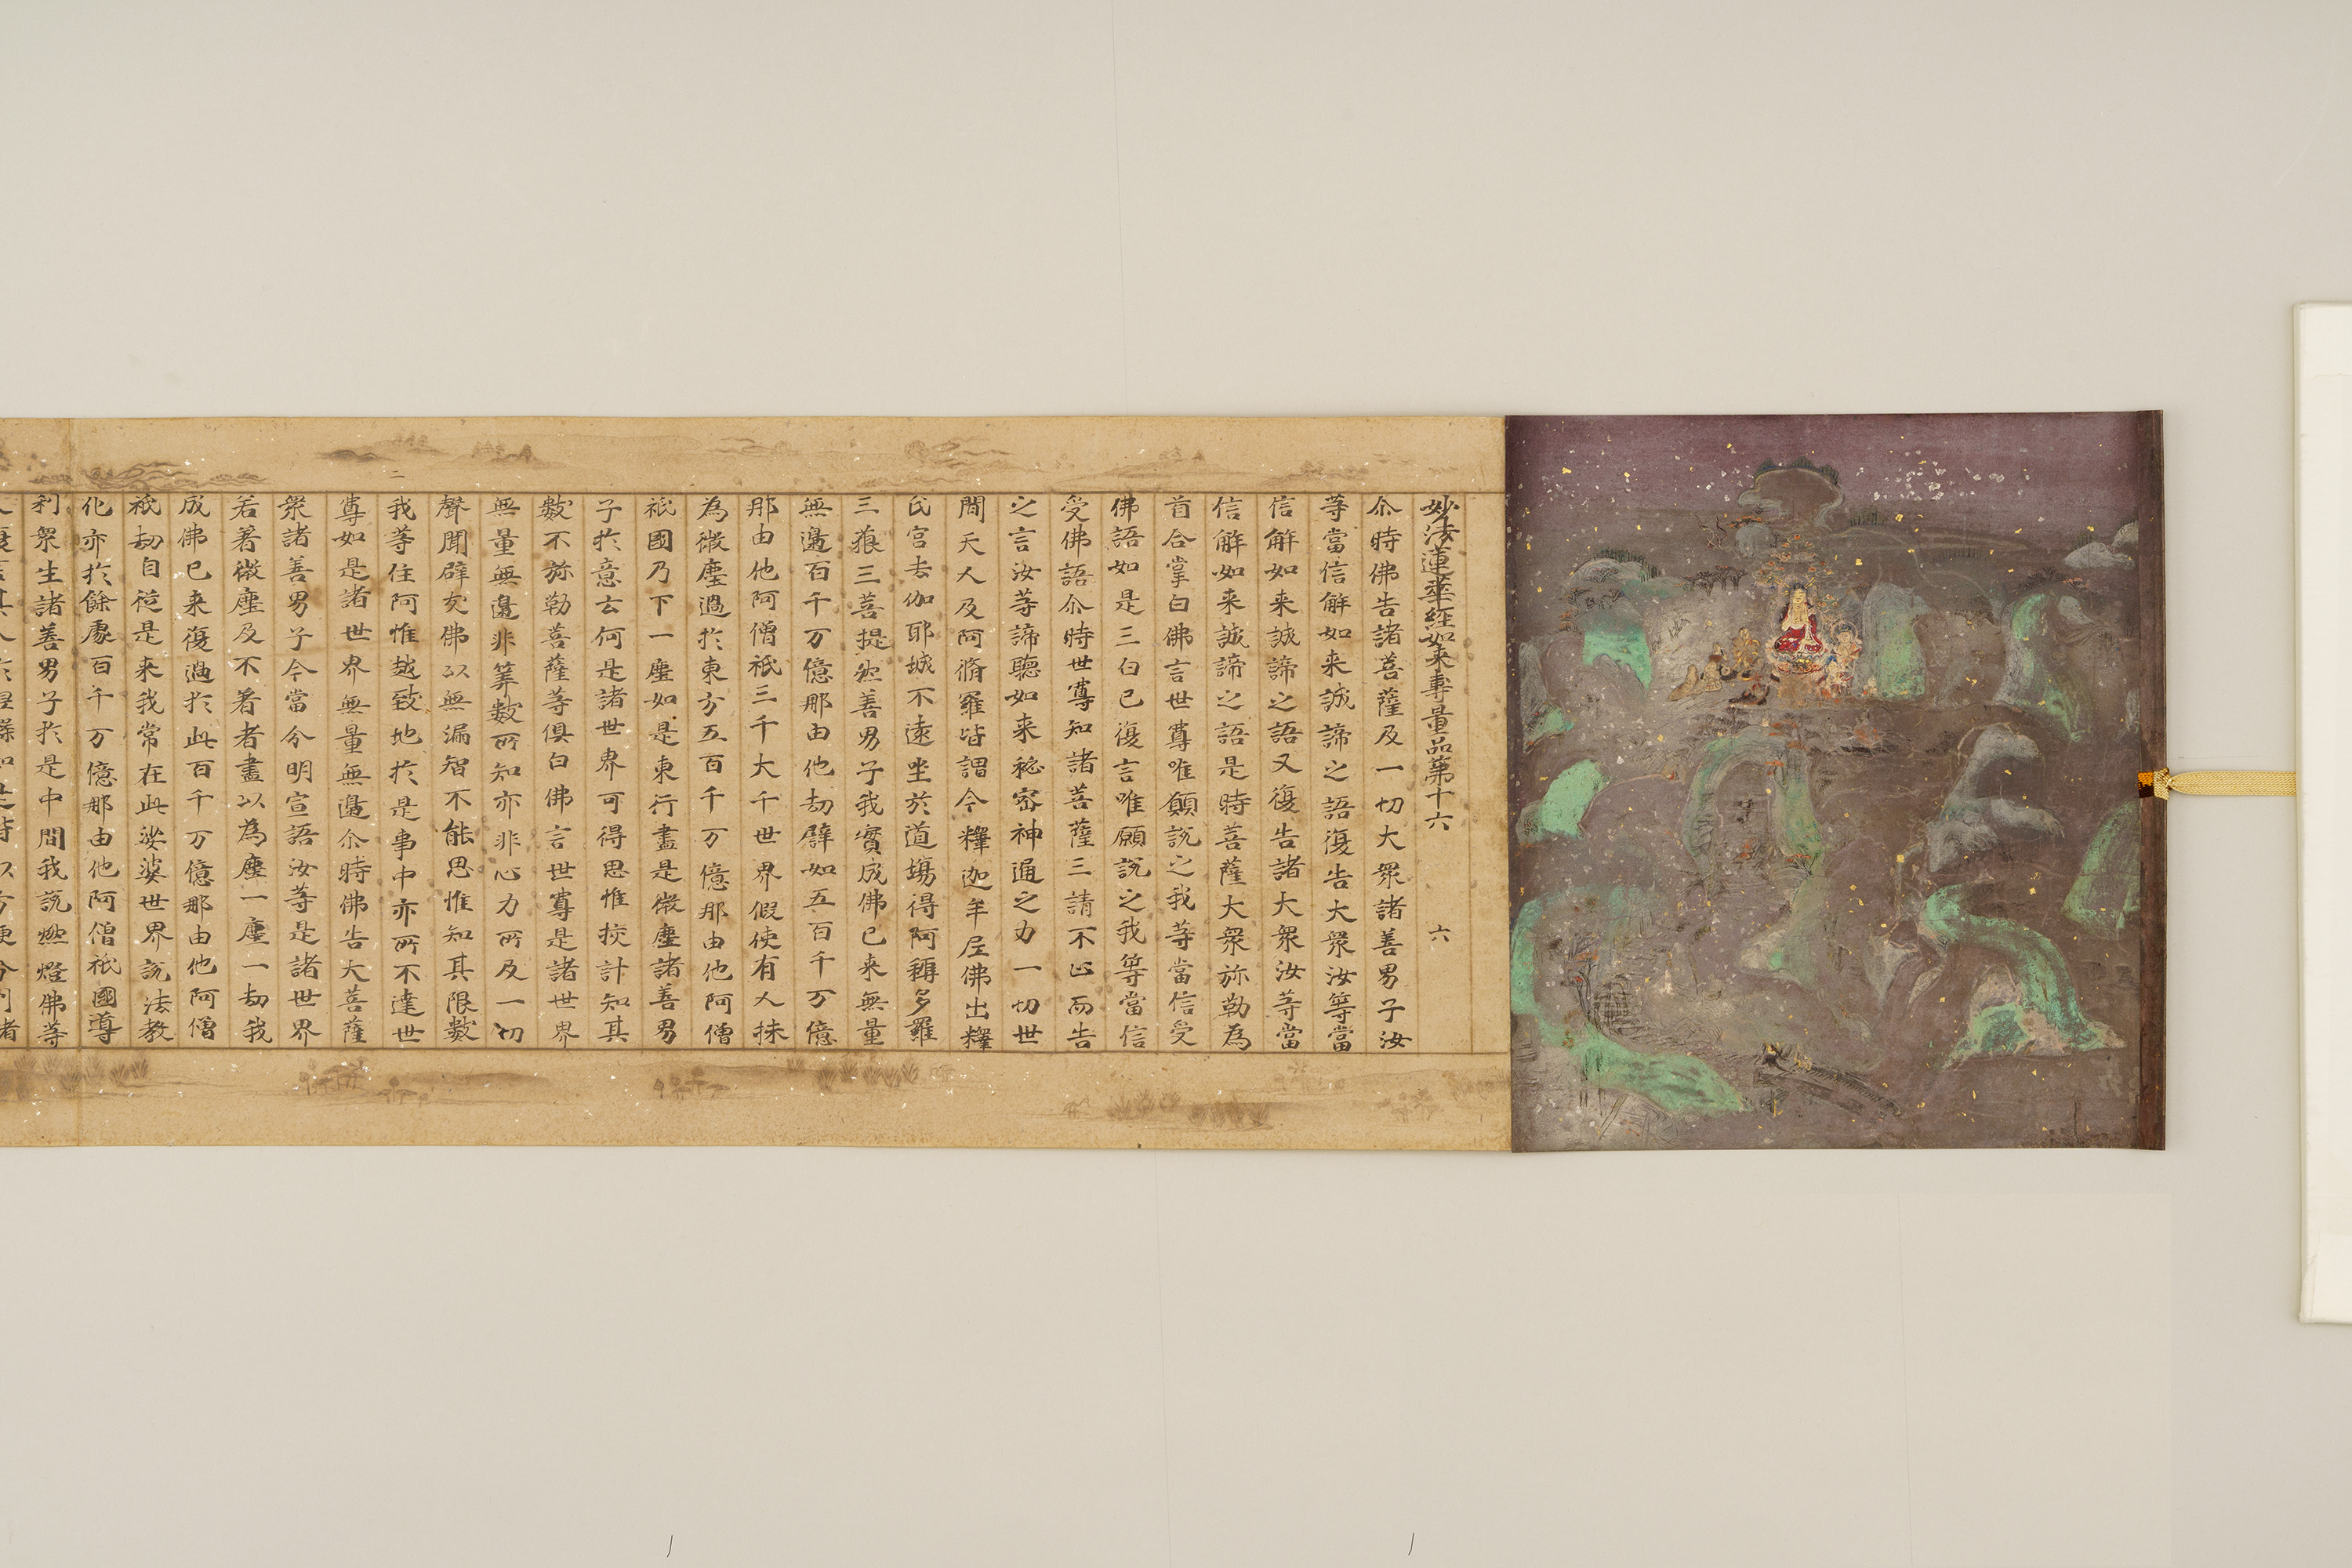 妙法蓮華經如来壽量品第十六　六
尒時佛告諸菩薩及一切大衆諸善男子汝
等當信解如来誠諦之語復告大衆汝等當
信解如来誠諦之語又復告諸大衆汝等當
信解如来誠諦之語是時菩薩大衆弥勒為
首合掌白佛言世尊唯願說之我等當信受
佛語如是三白已復言唯願說之我等當信
受佛語尒時世尊知諸菩薩三請不止而告
之言汝等諦聽如来秘密神通之力一切世
間天人及阿脩羅皆謂今釋迦牟尼佛出釋
氏宮去伽耶城不遠坐於道場得阿耨多羅
三藐三菩提然善男子我實成佛已来無量
無邊百千万億那由他劫譬如五百千万億
那由他阿僧祇三千大千世界假使有人抹
為微塵過於東方五百千万億那由他阿僧
祇國乃下一塵如是東行盡是微塵諸善男
子於意云何是諸世界可得思惟挍計知其
數不弥勒菩薩等俱白佛言世尊是諸世界
無量無邊非筭數所知亦非心力所及一切
聲聞辟支佛以無漏智不能思惟知其限數
我等住阿惟越致地於是事中亦所不達世
尊如是諸世界無量無邊尒時佛告大菩薩
衆諸善男子今當分明宣語汝等是諸世界
若著微塵及不著者盡以為塵一塵一劫我
成佛已来復過於此百千万億那由他阿僧
祇劫自從是来我常在此娑婆世界說法教
化亦於餘處百千万億那由他阿僧祇國導
利衆生諸善男子於是中間我說燃燈佛等